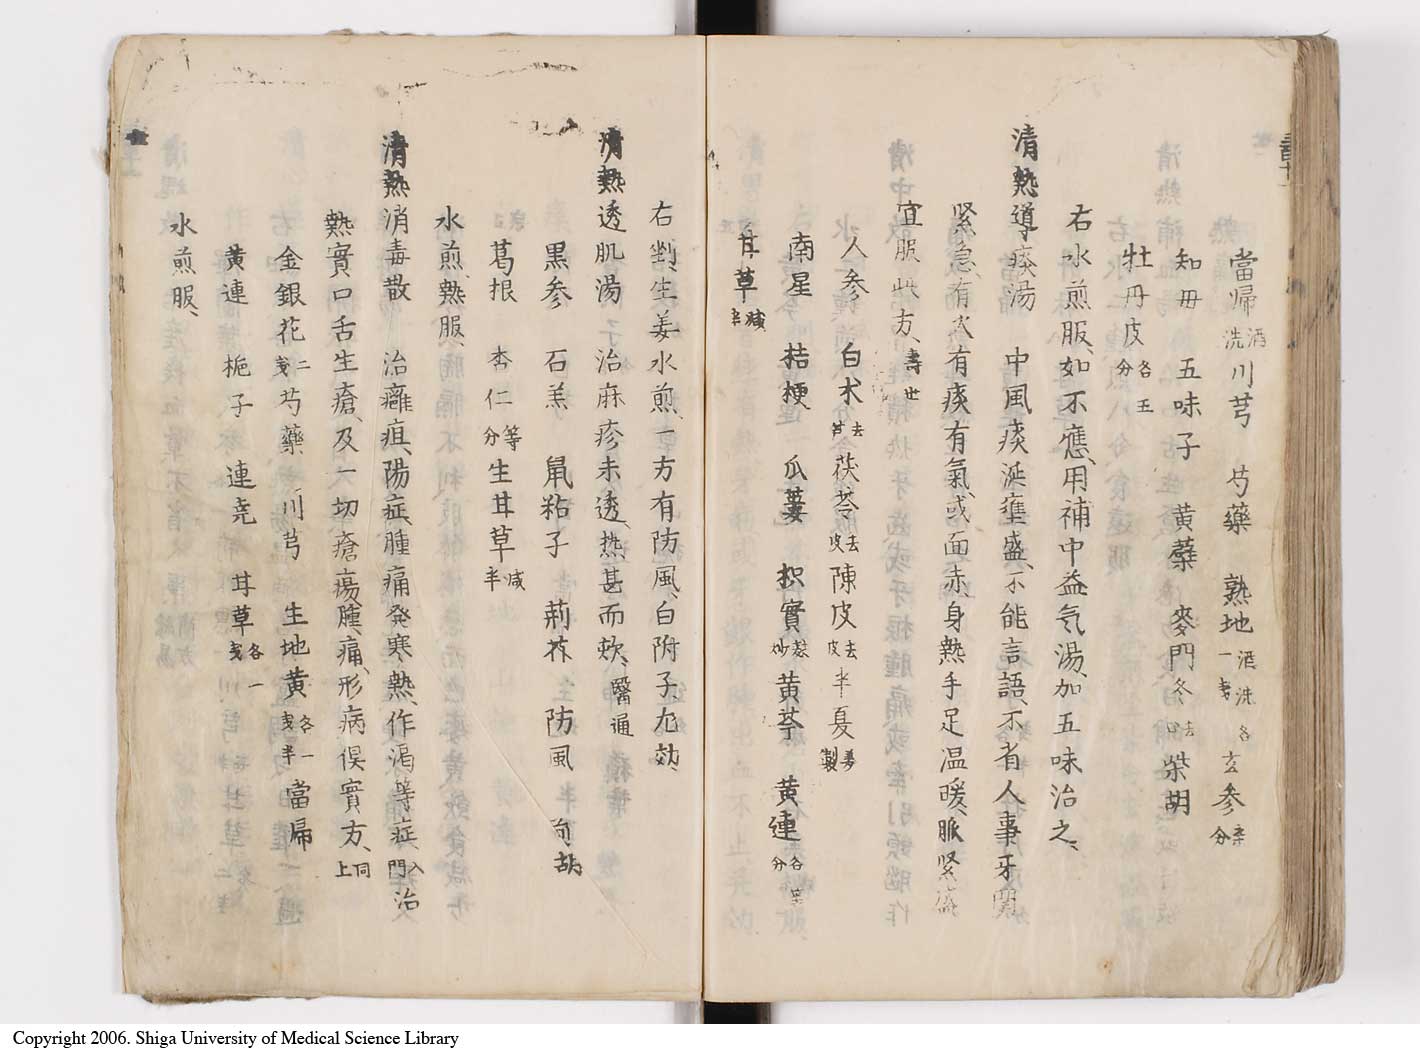 當歸酒洗川芎 芍藥 熟地酒洗各一戔玄参
知毋 五味子 黄蘗 麥門冬去 柴胡
牡丹皮各五分
右水煎服、如不應、用補中益気湯、加五味治之、
清熱導痰湯 中風痰涎壅盛、不能言語、不省人事牙関
緊急、有火有痰有氣、或面赤、身熱手足温暖、脈緊盛
宜服此方、壽世
人参 白朮去芦茯苓去皮陳皮去皮半夏姜製
南星 桔梗 瓜蔞 枳實麸炒黄芩 黄連各等分
耳草减半
右剉、生姜水煎、一方有防風、白附子、尤効、
清熱透肌湯 治麻疹未透、热甚而欬、醫通
黒参 石羔 鼠粘子 荊芥 防風 前胡
葛根 杏仁等分生耳草减半
水煎、熱服、
清熱消毒散 治癰疽、陽症、腫痛発寒熱、作渇等症、入門治
熱實口舌生瘡、及一切瘡瘍、腫痛、形病俣實方、同上
金銀花二戔芍藥 川芎 生地黄各一戔半當帰
黄連 梔子 連尭 耳草各一戔
水煎服、
Copyright 2006. Shiga University of Medical Science Library